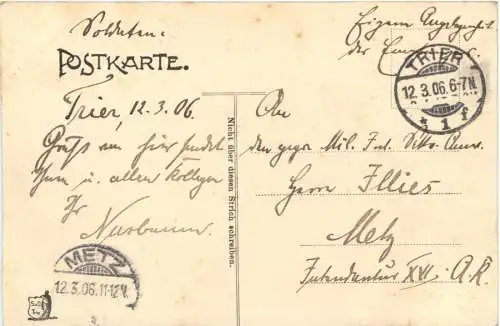 Soldaten:
Eigene Angelegenheit
der
POSTKARTE.
TRIER
12.3.06.6-7N.
* 1 f
Trier, 12.3.06.
Gruß von hier sendet
Ihnen u. allen Kollegen
Ihr
Nussbaum
An
den
Herrn Illies
Metz
Intendantur XVI. A.K.
Nicht über diesen Strich schreiben.
METZ
12.3.06.11-12N.